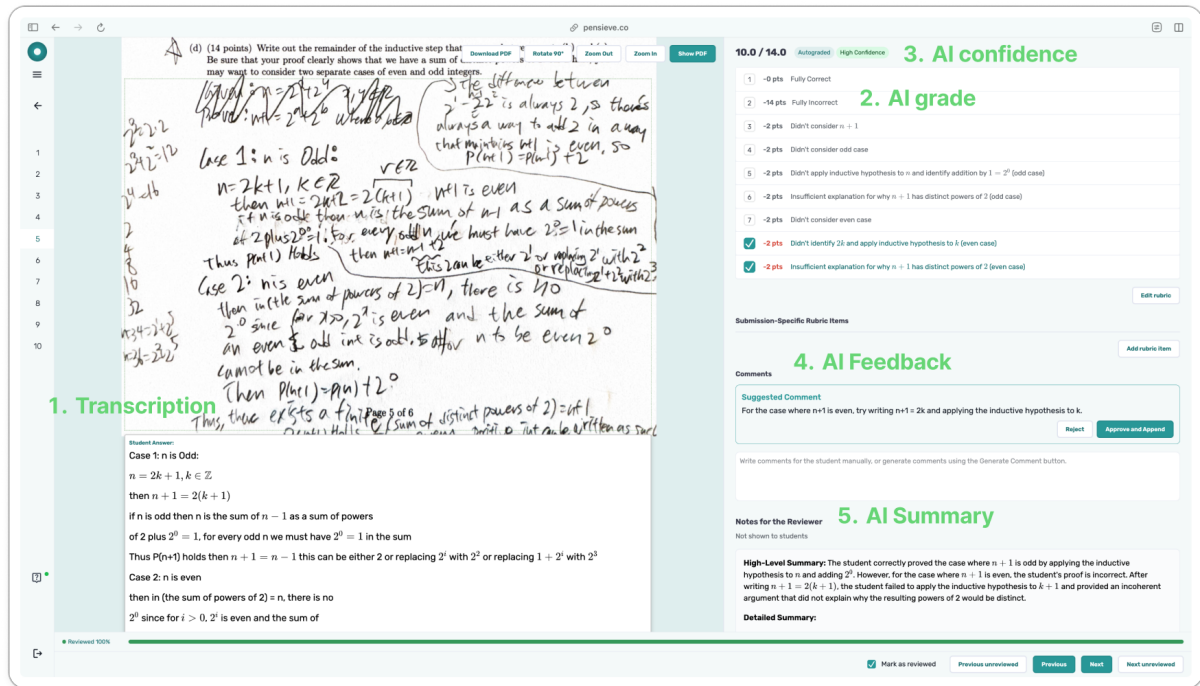 pensieve.co
(d) (14 points) Write out the remainder of the inductive step that
Be sure that your proof clearly shows that we have a sum of
may want to consider two separate cases of even and odd integers.
Download PDF
Rotate 90°
Zoom Out
Zoom In
Show PDF
the difference between
is always 2, so there's
always a way to add 2 in a way
that maintains n+1 is even, so
P(n+1) = P(n-1) + 2
Case 1: n is Odd:
n = 2k+1, k ∈ Z
r ∈ Z
then n+1 = 2k+2 = 2(k+1) n+1 is even
if n is odd then n is the sum of n-1 as a sum of powers
of 2 plus 2⁰=1, for every odd n, we must have 2⁰=1 in the sum
Thus P(n+1) Holds then n+1 = n-1 + 2
this 2 can be either 2¹ or replacing 2¹ with 2²
or replacing 2¹+2² with 2³
Case 2: n is even
then in (the sum of powers of 2) = n, there is no
2⁰ since for x>0, 2ˣ is even and the sum of
an even & odd int is odd, so for n to be even 2⁰
cannot be in the sum.
Then P(n+1) = P(n) + 2⁰
Thus, there exists a (sum of distinct powers of 2) = n+1
Page 5 of 6
1. Transcription
Student Answer:
Case 1: n is Odd:
n = 2k + 1, k ∈ ℤ
then n + 1 = 2(k + 1)
if n is odd then n is the sum of n − 1 as a sum of powers
of 2 plus 2⁰ = 1, for every odd n we must have 2⁰ = 1 in the sum
Thus P(n+1) holds then n + 1 = n − 1 this can be either 2 or replacing 2ⁱ with 2² or replacing 1 + 2ⁱ with 2³
Case 2: n is even
then in (the sum of powers of 2) = n, there is no
2⁰ since for i > 0, 2ⁱ is even and the sum of
1
2
3
4
5
6
7
8
9
10
10.0 / 14.0 Autograded High Confidence
3. AI confidence
1 -0 pts Fully Correct
2 -14 pts Fully Incorrect
2. AI grade
3 -2 pts Didn't consider n + 1
4 -2 pts Didn't consider odd case
5 -2 pts Didn't apply inductive hypothesis to n and identify addition by 1 = 2⁰ (odd case)
6 -2 pts Insufficient explanation for why n + 1 has distinct powers of 2 (odd case)
7 -2 pts Didn't consider even case
-2 pts Didn't identify 2k and apply inductive hypothesis to k (even case)
-2 pts Insufficient explanation for why n + 1 has distinct powers of 2 (even case)
Edit rubric
Submission-Specific Rubric Items
Add rubric item
4. AI Feedback
Comments
Suggested Comment
For the case where n+1 is even, try writing n+1 = 2k and applying the inductive hypothesis to k.
Reject
Approve and Append
Write comments for the student manually, or generate comments using the Generate Comment button.
5. AI Summary
Notes for the Reviewer
Not shown to students
High-Level Summary: The student correctly proved the case where n + 1 is odd by applying the inductive
hypothesis to n and adding 2⁰. However, for the case where n + 1 is even, the student's proof is incorrect. After
writing n + 1 = 2(k + 1), the student failed to apply the inductive hypothesis to k + 1 and provided an incoherent
argument that did not explain why the resulting powers of 2 would be distinct.
Detailed Summary:
Reviewed 100%
Mark as reviewed
Previous unreviewed
Previous
Next
Next unreviewed